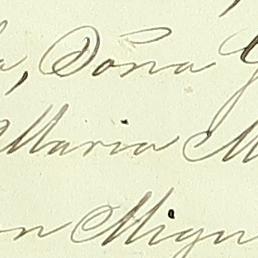 a, Doña G
Maria M
on Migu